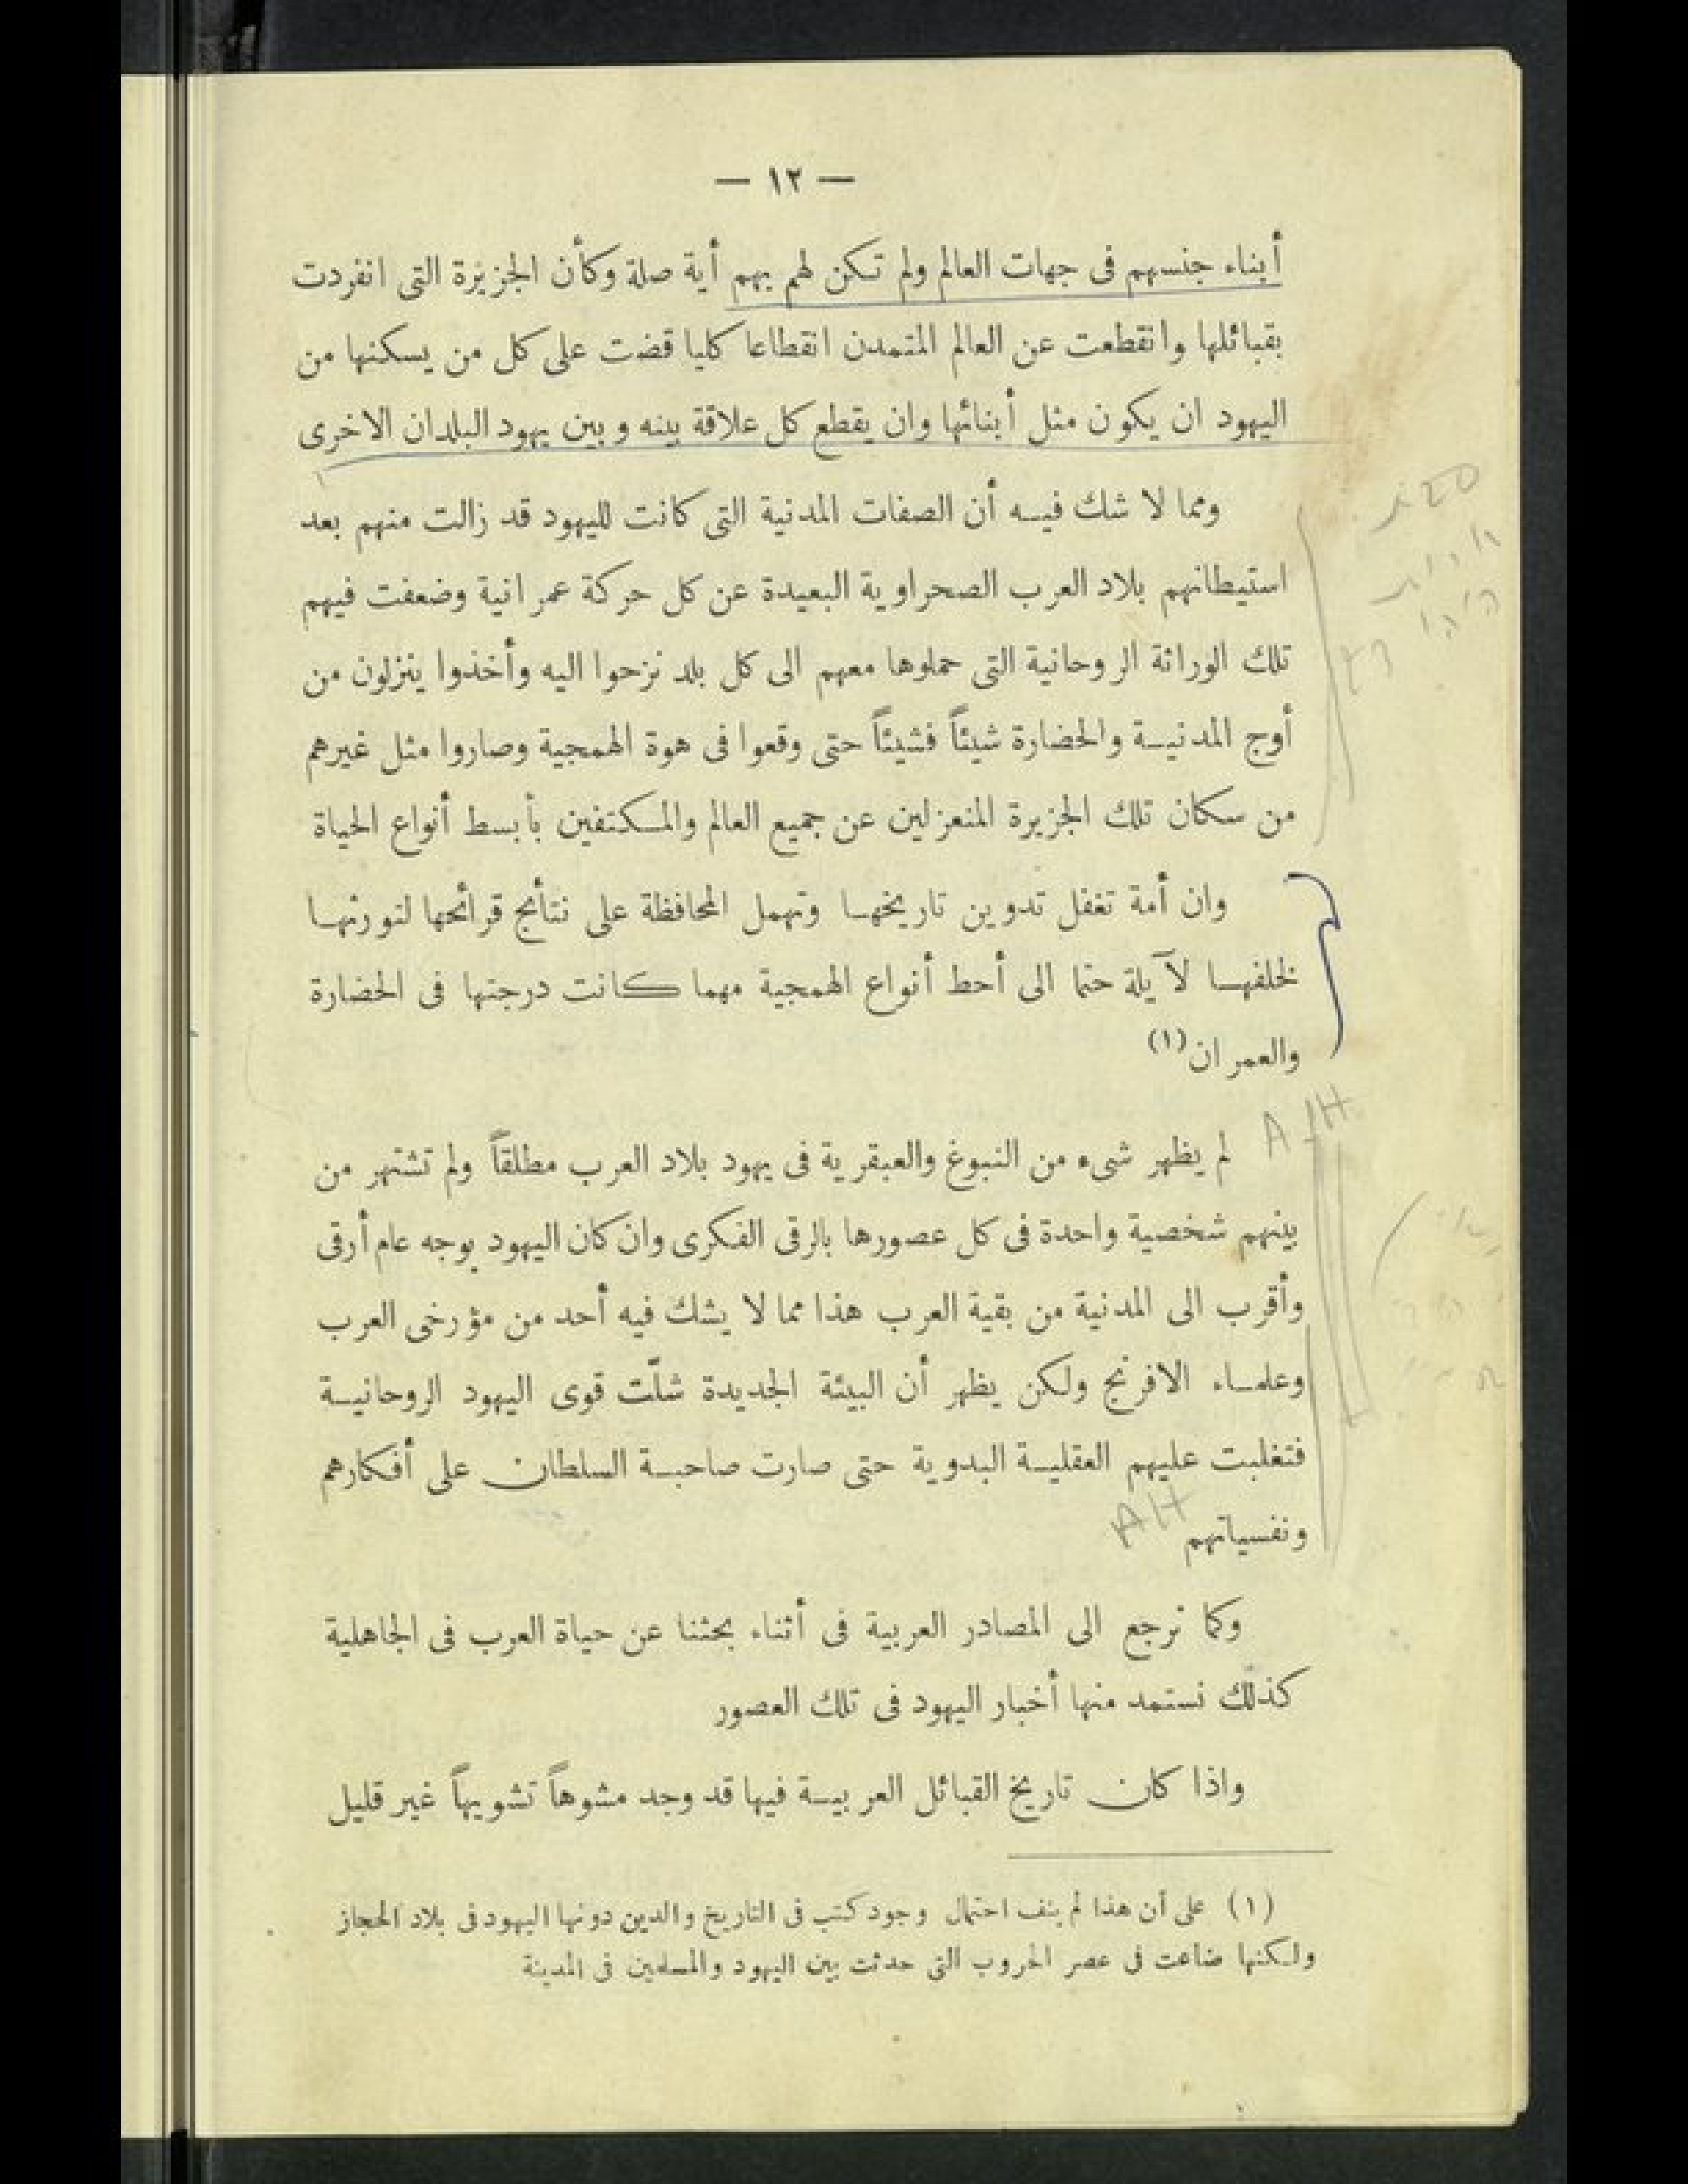 — ١٢ —
أبناء جنسهم فى جهات العالم ولم تكن لهم بهم أية صلة وكأن الجزيرة التى انفردت
بقبائلها وانقطعت عن العالم المتمدن انقطاعا كليا قضت على كل من يسكنها من
اليهود ان يكون مثل أبنائها وان يقطع كل علاقة بينه وبين يهود البلدان الاخرى
ومما لا شك فيه أن الصفات المدنية التى كانت لليهود قد زالت منهم بعد
استيطانهم بلاد العرب الصحراوية البعيدة عن كل حركة عمرانية وضعفت فيهم
تلك الوراثة الروحانية التى حملوها معهم الى كل بلد نزحوا اليه وأخذوا ينزلون من
أوج المدنية والحضارة شيئاً فشيئاً حتى وقعوا فى هوة الهمجية وصاروا مثل غيرهم
من سكان تلك الجزيرة المنعزلين عن جميع العالم والمكتفين بأبسط أنواع الحياة
وان أمة تغفل تدوين تاريخها وتهمل المحافظة على نتأئج قرائحها لتورثها
لخلفها لآيلة حتما الى أحط أنواع الهمجية مهما كانت درجتها فى الحضارة
والعمران (١)
A H
لم يظهر شىء من النبوغ والعبقرية فى يهود بلاد العرب مطلقاً ولم تشتهر من
بينهم شخصية واحدة فى كل عصورها بالرقى الفكرى وان كان اليهود بوجه عام أرقى
وأقرب الى المدنية من بقية العرب هذا مما لا يشك فيه أحد من مؤرخى العرب
وعلماء الافرنج ولكن يظهر أن البيئة الجديدة شلّت قوى اليهود الروحانية
فتغلبت عليهم العقلية البدوية حتى صارت صاحبة السلطان على أفكارهم
ونفسياتهم AH
وكما نرجع الى المصادر العربية فى أثناء بحثنا عن حياة العرب فى الجاهلية
كذلك نستمد منها أخبار اليهود فى تلك العصور
واذا كان تاريخ القبائل العربية فيها قد وجد مشوهاً تشويهاً غير قليل
(١) على أن هذا لم ينف احتمال وجود كتب فى التاريخ والدين دونها اليهود فى بلاد الحجاز
ولكنها ضاعت فى عصر الحروب التى حدثت بين اليهود والمسلمين فى المدينة